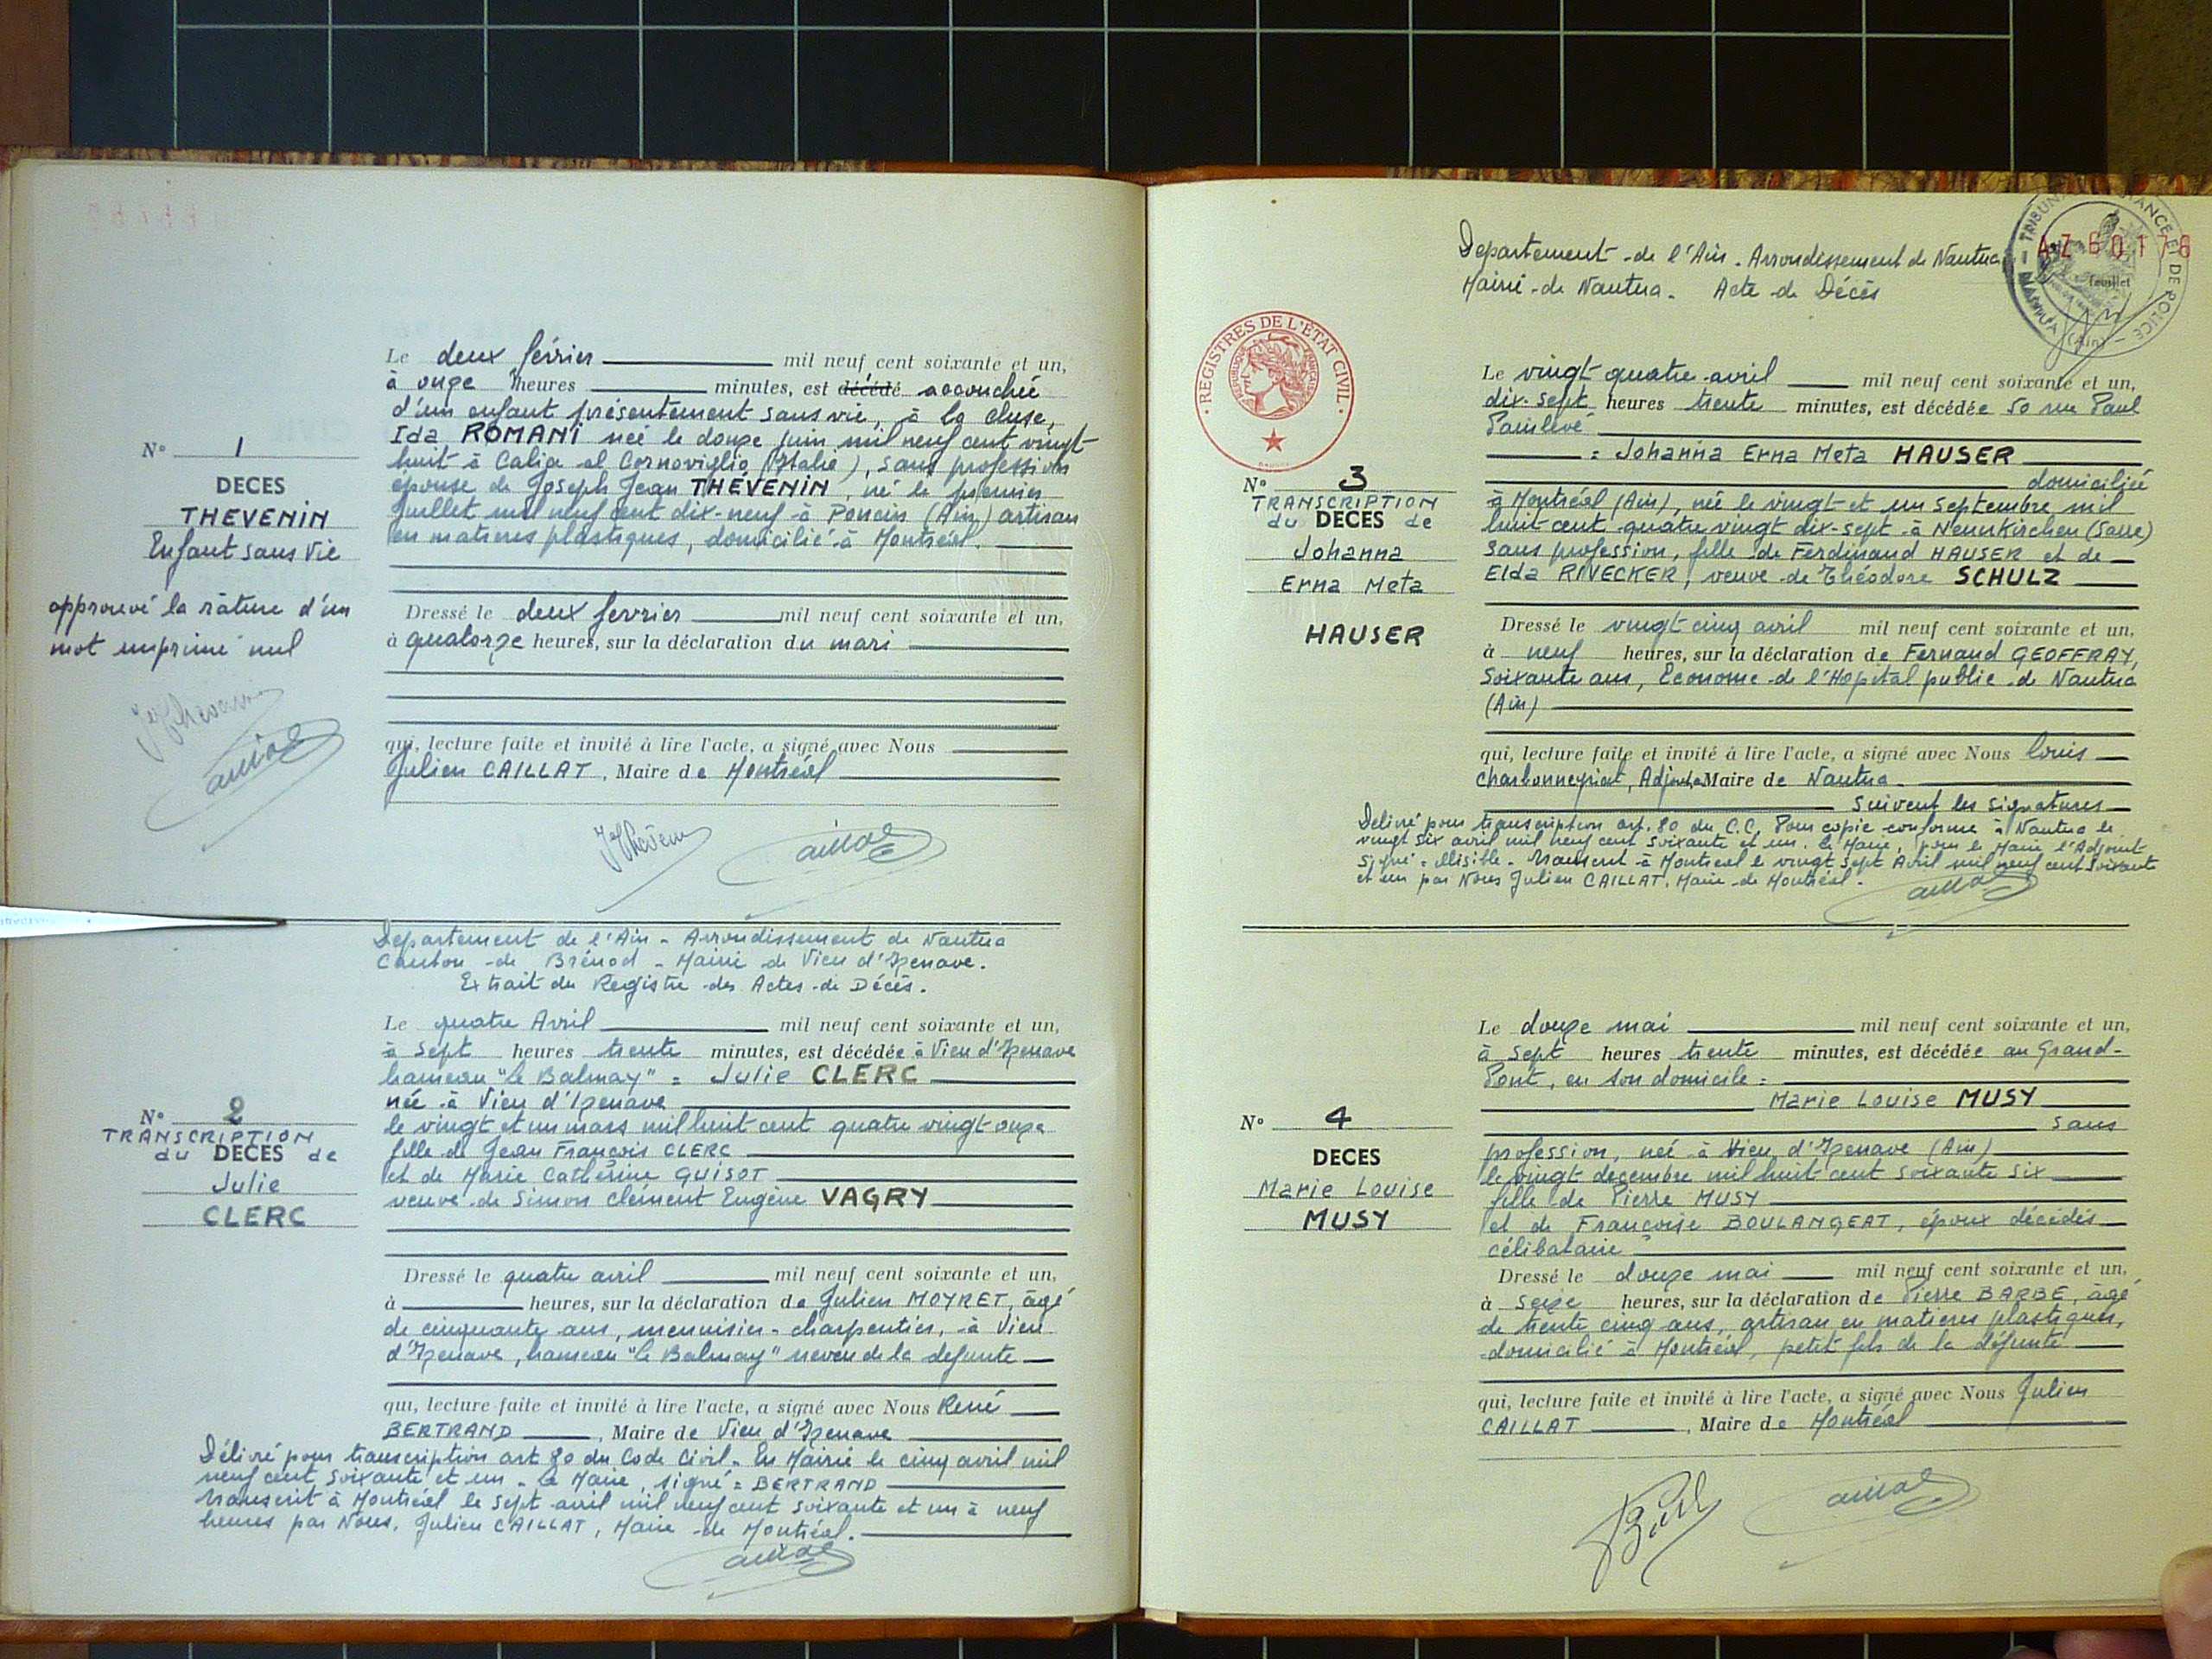 Le deux février mil neuf cent soixante et un,
à onze heures minutes, est décédé accouchée
d'un enfant présentement sans vie, à la cluse,
Ida ROMANI née le douze juin mil neuf cent vingt
huit à Calia al Cornoviglio (Italie), sans profession
épouse de Joseph Jean THÉVENIN, né le premier
Juillet mil neuf cent dix-neuf à Poncin (Ain) artisan
en matieres plastiques, domicilié à Montréal.
N° 1
DECES
THEVENIN
Enfant sans vie
approuvé la râture d'un
mot imprimé nul
Dressé le deux fevrier mil neuf cent soixante et un,
à quatorze heures, sur la déclaration du mari
qui, lecture faite et invité à lire l'acte, a signé avec Nous
Julien CAILLAT, Maire de Montréal
Departement de l'Ain - Arrondissement de Nantua
Canton de Brénod - Mairie de Vieu d'Izenave.
Extrait du Registre des Actes de Décès.
Le quatre Avril mil neuf cent soixante et un,
à sept heures trente minutes, est décédée à Vieu d'Izenave
hameau "Le Balmay" = Julie CLERC
née à Vieu d'Izenave
le vingt et un mars mil huit cent quatre vingt onze
fille de Jean François CLERC
et de Marie Catherine GUISOT
veuve de Simon Clément Eugène VAGRY
N° 2
TRANSCRIPTION
du DECES de
Julie
CLERC
Dressé le quatre avril mil neuf cent soixante et un,
à heures, sur la déclaration de Julien MOYRET, âgé
de cinquante ans, menuisier - charpentier, à Vieu
d'Izenave, hameau "le Balmay" neveu de la defunte
qui, lecture faite et invité à lire l'acte, a signé avec Nous René
BERTRAND, Maire de Vieu d'Izenave
Délivré pour transcription art 80 du Code Civil. En Mairie le cinq avril mil
neuf cent soixante et un - Le Maire, signé = BERTRAND
Transcrit à Montréal le sept avril mil neuf cent soixante et un à neuf
heures par Nous, Julien CAILLAT, Maire de Montréal.
Departement de l'Ain. Arrondissement de Nantua
Mairie de Nantua. Acte de Décès
AZ 60176
feuillet
REGISTRES DE L'ÉTAT CIVIL
Le vingt quatre avril mil neuf cent soixante et un,
dix-sept heures trente minutes, est décédée 50 rue Paul
Painlevé
= Johanna Erna Meta HAUSER
domiciliée
à Montréal (Ain), née le vingt et un Septembre mil
huit cent quatre vingt dix-sept à Neunkirchen (Sarre)
sans profession, fille de Ferdinand HAUSER et de
Elda RIVECKER, veuve de Théodore SCHULZ
N° 3
TRANSCRIPTION
du DECES de
Johanna
Erna Meta
HAUSER
Dressé le vingt-cinq avril mil neuf cent soixante et un,
à neuf heures, sur la déclaration de Fernand GEOFFRAY,
soixante ans, Econome de l'Hopital public de Nantua
(Ain)
qui, lecture faite et invité à lire l'acte, a signé avec Nous Louis
Charbonneyriat, Adjoint Maire de Nantua
suivent les signatures
Délivré pour transcription art. 80 du C.C. Pour copie conforme à Nantua le
vingt six avril mil neuf cent soixante et un. le Maire, pour le Maire l'Adjoint
Signé = illisible - Transcrit à Montréal le vingt sept Avril mil neuf cent soixante
et un par Nous Julien CAILLAT. Maire de Montréal.
Le douze mai mil neuf cent soixante et un,
à sept heures trente minutes, est décédée au Grand-
Pont, en son domicile =
Marie Louise MUSY
sans
profession, née à Vieu d'Izenave (Ain)
le vingt decembre mil huit cent soixante six
fille de Pierre MUSY
et de Françoise BOULANGEAT, époux décédés
célibataire
N° 4
DECES
Marie Louise
MUSY
Dressé le douze mai mil neuf cent soixante et un,
à seize heures, sur la déclaration de Pierre BARBE, âgé
de trente cinq ans, artisan en matieres plastiques,
domicilié à Montréal, petit fils de la défunte
qui, lecture faite et invité à lire l'acte, a signé avec Nous Julien
CAILLAT, Maire de Montréal